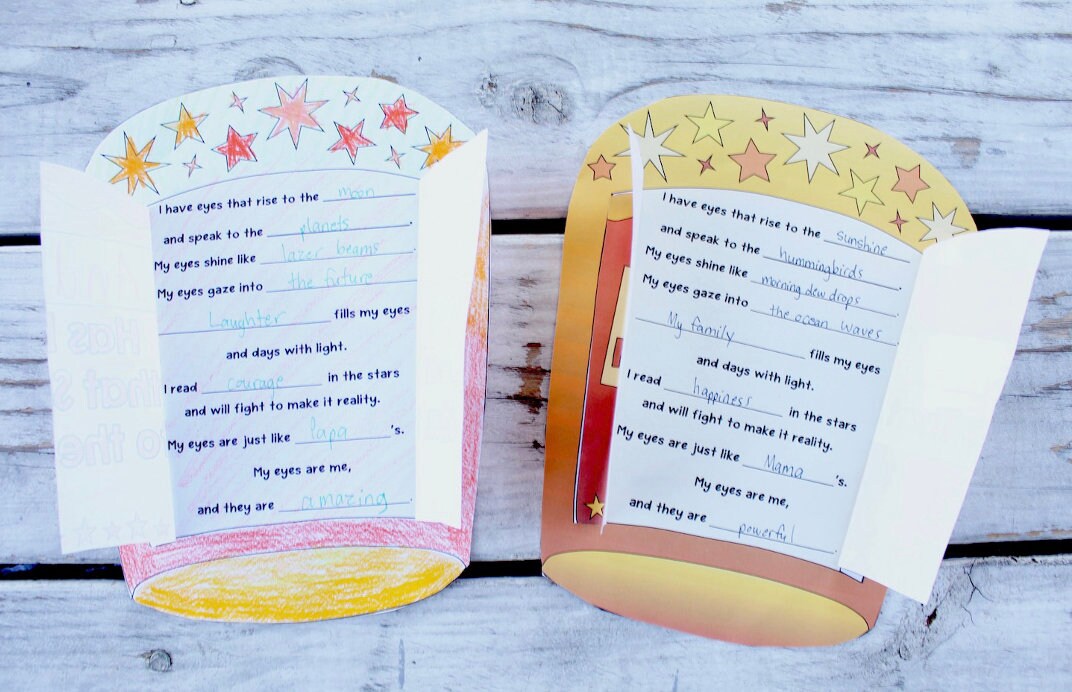 I have eyes that rise to the moon
and speak to the planets.
My eyes shine like lazer beams.
My eyes gaze into the future
Laughter fills my eyes
and days with light.
I read courage in the stars
and will fight to make it reality.
My eyes are just like Papa's.
My eyes are me,
and they are amazing.
I have eyes that rise to the sunshine
and speak to the hummingbirds.
My eyes shine like morning dew drops.
My eyes gaze into the ocean waves
My family fills my eyes
and days with light.
I read happiness in the stars
and will fight to make it reality.
My eyes are just like Mama's.
My eyes are me,
and they are powerful.